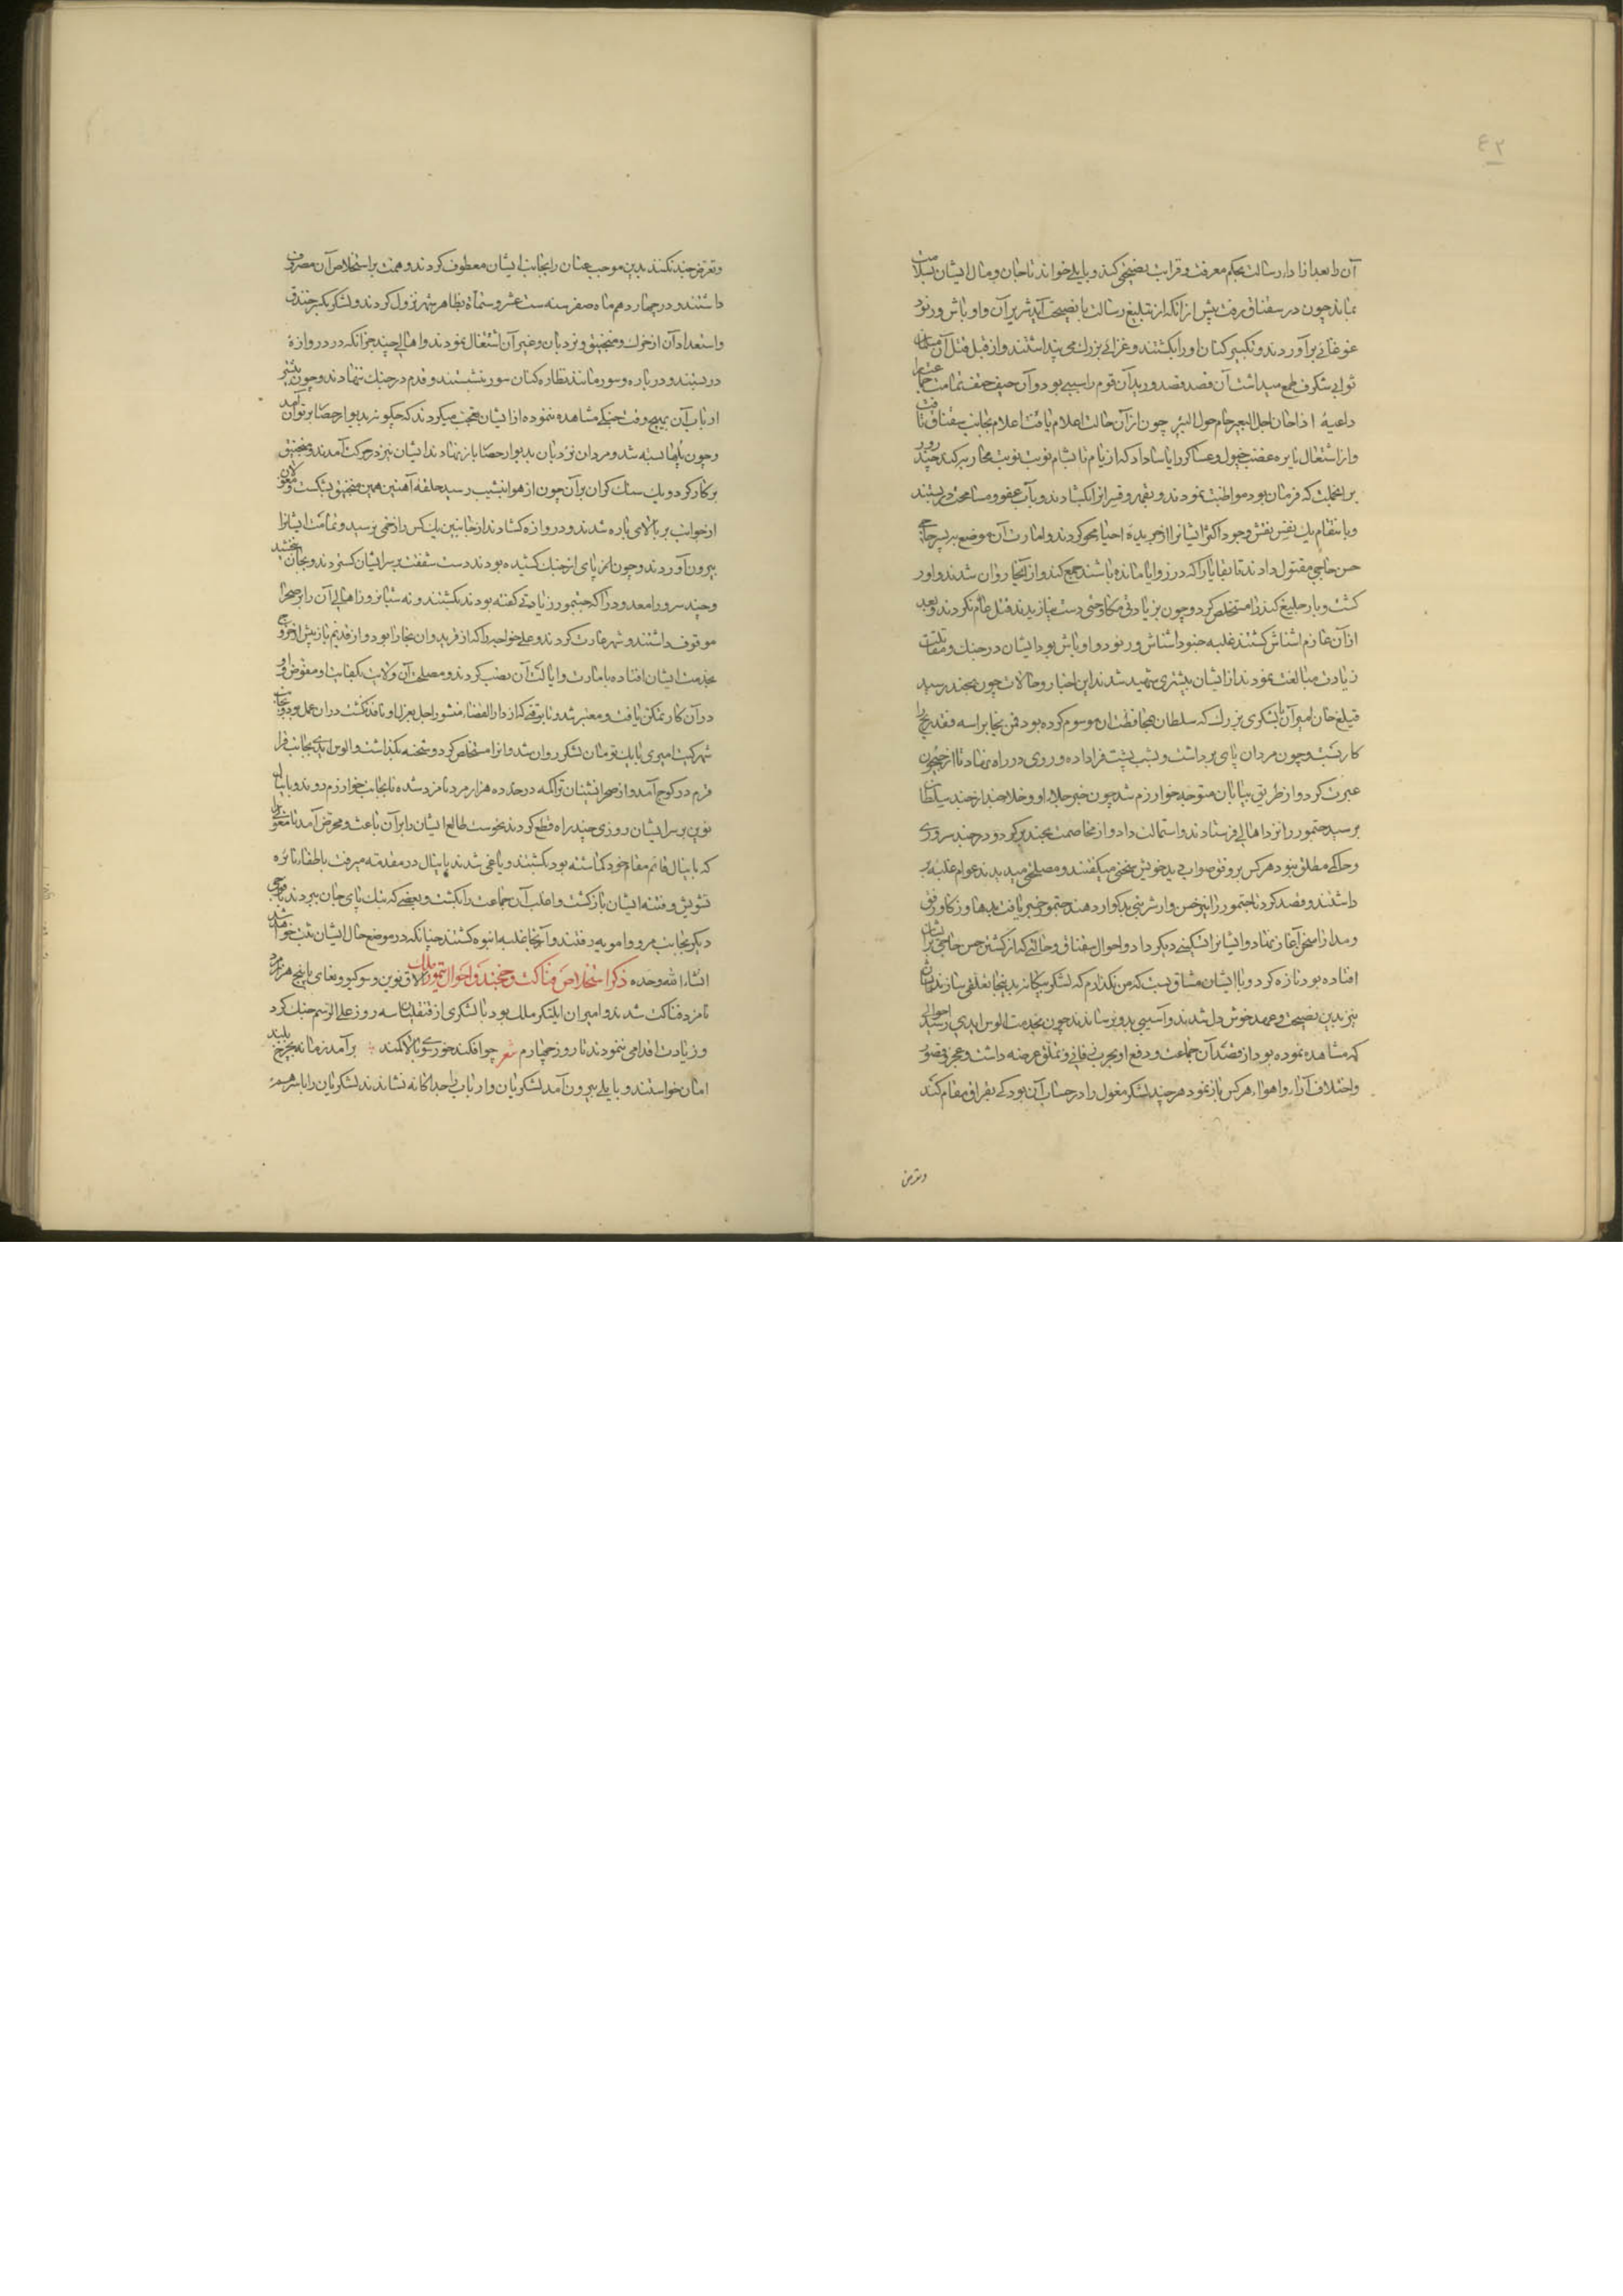 ٤٢
آن را بعد از ادا رسالت بحکم معرفت و قرابت نصیحتی کند و بایلی خواند تا جان و مال ایشان بسلامت
بماند چون در سقناق رفت پیش از آنکه از تبلیغ رسالت با نصیحت آید شریران و اوباش و رنود
غوغائی برآوردند و تکبیر کنان او را بکشتند و غزائی بزرگ می پنداشتند و از قبل قتل آن مسلمان
ثوابی شگرف طمع میداشت آن قصد فصد ورید آن قوم را سببی بود و آن حیف حتف تمامت جماعت را
داعیهٔ اذا حان اجل البعیر حام حول البیر چون از آن حالت اعلام یافت اعلام بجانب سقناق تافت
و از اشتعال نایره غضب خیول و عساکر را یاسا داد که از بام تا شام نوبت نوبت محاربه کند چند روز
بر انجملت که فرمان بود مواظبت نمودند و بقهر و قسر انرا بکشادند و باب عفو و مسامحت دربستند
و بانتقام یک نفس نقش وجود اکثر ایشانرا از جریدهٔ احیا محو کردند و امارت آن موضع بر پسر
حسن حاجی مقتول دادند تا بقایا را که در زوایا مانده باشند جمع کند و از آنجا روان شدند و اوز
کنت و بارجلیغ کنت را مستخلص کرد و چون بزیادتی مکاوحتی دست نیازیدند قتل عام نکردند و بعد
از آن عازم اشناس گشتند غلبه جنود اشناس و رنود و اوباش بود ایشان در جنک و مقاتلت
زیادت مبالغت نمودند از ایشان بیشتری شهید شدند این اخبار و حالات چون بجند رسید
قتلغ خان امیر آن با لشکری بزرگ که سلطان بمحافظت آن موسوم کرده بود من نجا براسه فقد ربح را
کار بست و چون مردان پای برداشت و بشب پشت فرا داده و روی در راه نهاد تا از جیحون
عبرت کرد و از طریق بیابان متوجه خوارزم شد چون خبر جلاء او و خلا جند از جند سلطان
برسید جنتمور را نزد اهالی فرستادند و استمالت داد و از مخاصمت تحذیر کرد و در جند سروری
و حاکمی مطلق نبود هر کس بر وفق صوابدید خویش سخنی میگفتند و مصلحتی میدیدند عوام غلبه بر
داشتند و قصد کردند تا جنتمور را نیز حسن وار شربتی بدگوار دهند جنتمور خبر یافت بدها و ذکا و رفق
و مدارا سخن آغاز نهاد و ایشانرا تسکینی دیگر داد و احوال سقناق و حالتی که از کشتن حسن حاجی بر ایشان
افتاده بود تازه کرد و با ایشان میثاق بست که من نگذارم که لشکر بیگانه بدینجا تعلقی سازند ایشان
نیز بدین نصیحت و عهد خوش دل شدند و آسیبی بدو نرساندند چون بخدمت الوس ایدی رسید احوالی
که مشاهده نموده بود از قصد آن جماعت و دفع او بچرب زبانی و تملق عرضه داشت و عجز و قصور
و اختلاف آراء و اهواء هر کس باز نمود هر چند لشکر مغول را در حساب آن بود که بقراقوم مقام کنند
وتعرض
و تعرض جند نکنند بدین موجب عنان را بجانب ایشان معطوف کردند و همت بر استخلاص آن مصروف
داشتند و در چهاردهم ماه صفر سنه ست عشر و ستمأة بظاهر شهر نزول کردند و لشکر بکبس خندق
و استعداد آن از خرک و منجنیق و نردبان و غیر آن اشتغال نمودند و اهالی جند جز آنکه در دروازهٔ
دربستند و در باره و سور مانند نظاره کنان سور نشستند و قدم در جنک ننهادند و چون بیشتر
ارباب آن بهیچ وقت جنگی مشاهده ننموده از ایشان تعجب میکردند که چگونه بدیوار حصار بر توان آمد
و چون پلها بسته شد و مردان نردبان بدیوار حصار باز نهادند ایشان نیز در حرکت آمدند و منجنیق
بر کار کرد و یک سنک گران بر آن چون از هوا بنشیب رسید حلقهٔ آهنین همین منجنیق بشکست و مغولان
از جوانب بر بالای باره شدند و دروازه کشادند از جانبین یک کس را زخمی نرسید و تمامت ایشانرا
بیرون آوردند و چون نیز پای از جنک کشیده بودند دست شفقت بر سر ایشان گستردند و بجان ببخشید
و چند سرور معدود را که جنتمور را زیادتی گفته بودند بکشتند و نه شبانروز اهالی آن را بر صحرا
موقوف داشتند و شهر غارت کردند و علی خواجه را که از غزدوان بخارا بود و از قدیم باز پیش از خروج
بخدمت ایشان افتاده بامارت و ایالت آن نصب کردند و مصلحت آن ولایت بکفایت او مفوض و او
در آن کار تمکن یافت و معتبر شد و تا بوقتی که از دار القضاء منشور اجل بعزل او نافذ گشت در آن عمل بود و بجانب
شهرکنت امیری با یک تومان لشکر روان شد و انرا مستخلص کرد و شحنه بگذاشت و الوس ایدی بجانب قرا
قرم در کوچ آمد و از صحرانشینان تراکمه در حد ده هزار مرد نامزد شده تا بجانب خوارزم روند و باینال
نوین بر سر ایشان روزی چند راه قطع کردند نحوست طالع ایشان را بر آن باعث و محرض آمد تا مغولی
که باینال قایم مقام خود گماشته بود بکشتند و یاغی شدند باینال در مقدمه میرفت باطفاء نایره
تشویش و فتنه ایشان بازگشت و اغلب آن جماعت را بکشت و بعضی که بتک پای جان ببردند با فوجی
دیگر بجانب مرو و امویه رفتند و آنجا غلبه انبوه گشتند چنانکه در موضع حال ایشان ثبت خواهد شد
انشاء الله وحده ذکر استخلاص فناکت و خجند و احوال تیمور ملک الاق نوین و سوکتو و تغای با پنج هزار مرد
نامزد فناکت شدند و امیر آن ایلتکو ملک بود با لشکری از قنقلیان سه روز علی الرسم جنک کرد
و زیادت اقدامی ننمودند تا روز چهارم شعر چو افکند خور سوی بالا کمند برآمد زمانه بچرخ بلند
امان خواستند و بایلی بیرون آمد لشکریان و ارباب را جداگانه نشاندند لشکریان را باسرهم